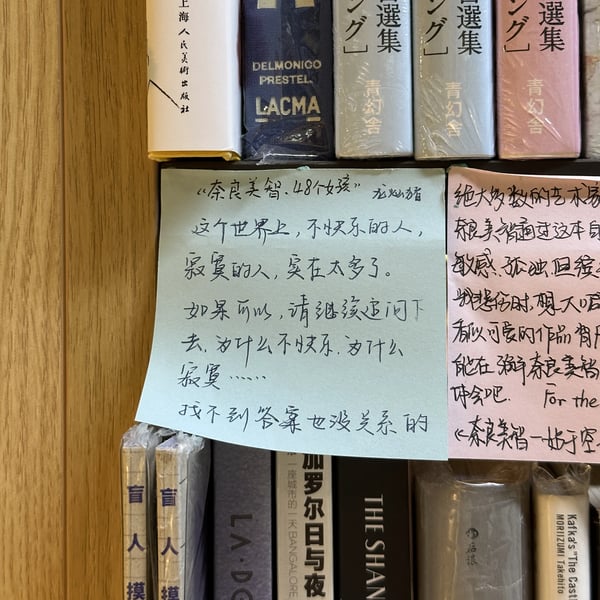 上海人民美術出版社
DELMONICO
PRESTEL
LACMA
選集
ング］
青幻舎
選集
ング］
青幻舎
選集
ング］
青幻舎
《奈良美智、48个女孩》
这个世界上，不快乐的人，
寂寞的人，实在太多了。
如果可以，请继续追问下
去，为什么不快乐，为什么
寂寞……
找不到答案也没关系的
绝大多数的艺术家
奈良美智通过这本自
敏感、孤独、但
看似可爱的作品背后
能在 奈良美智
体会吧. For the
《奈良美智一站于空
盲人摸
盲人摸
LA·DO
加罗尔日与夜
一座城市的一天 BANGALORE
THE SHAN
Kafka's "The Castl
MORIIZUMI Takehito